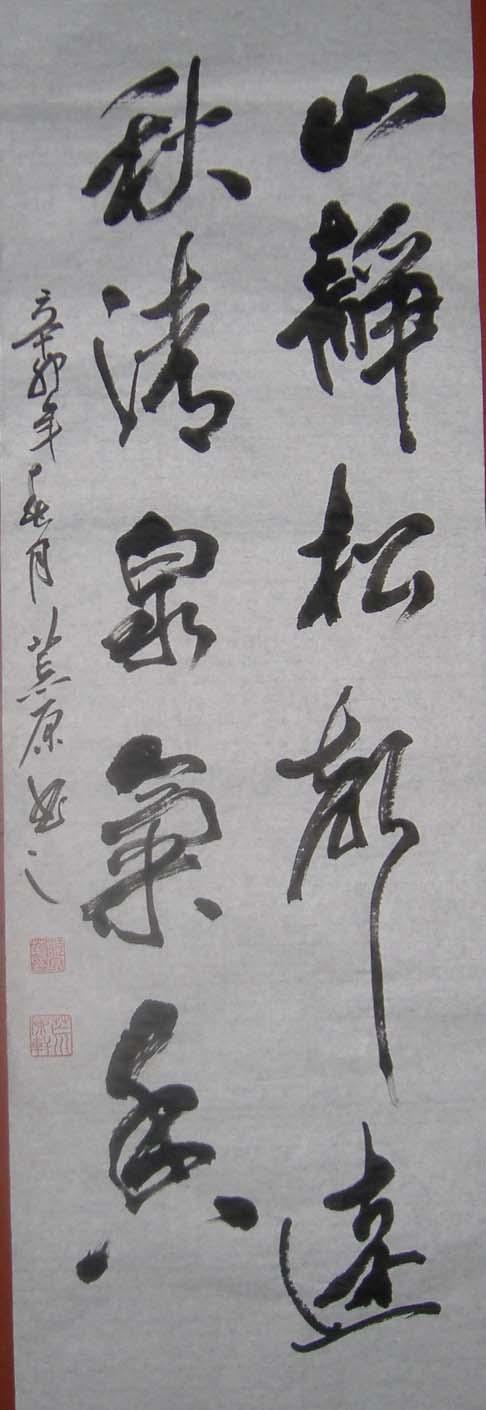 山靜松聲遠
秋清泉氣香
辛卯年春月 原書之